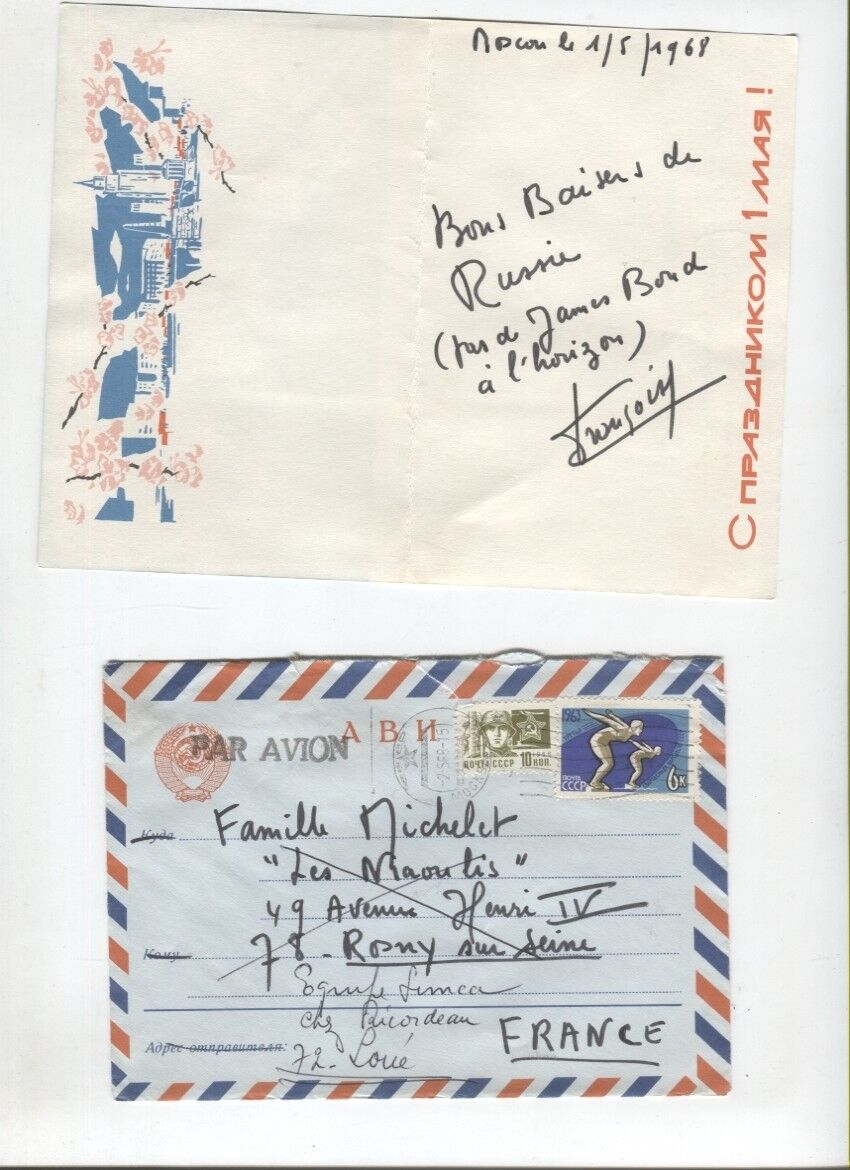 Moscou le 1/5/1968
Bons Baisers de
Russie
(pas de James Bond
à l'horizon)
С ПРАЗДНИКОМ 1 МАЯ!
PAR AVION
АВИ
МОСК
ПОЧТА СССР 10 КОП.
1966
1963
ПОЧТА
СССР
6к
Куда
Famille Michelet
"Les Miaoutis"
49 Avenue Henri IV
78 - Rosny sur Seine
Кому
Equipe Simca
chez Ricordeau
FRANCE
Адрес отправителя:
72 - Loué